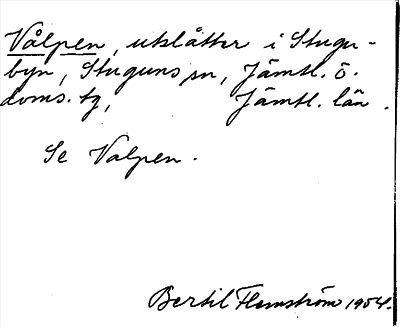 Vålpen, utslåtter i Stugu-
byn, Stuguns sn, Jämtl. ö.
doms. tg, Jämtl. län.
Se Valpen.
Bertil Flemström 1954.